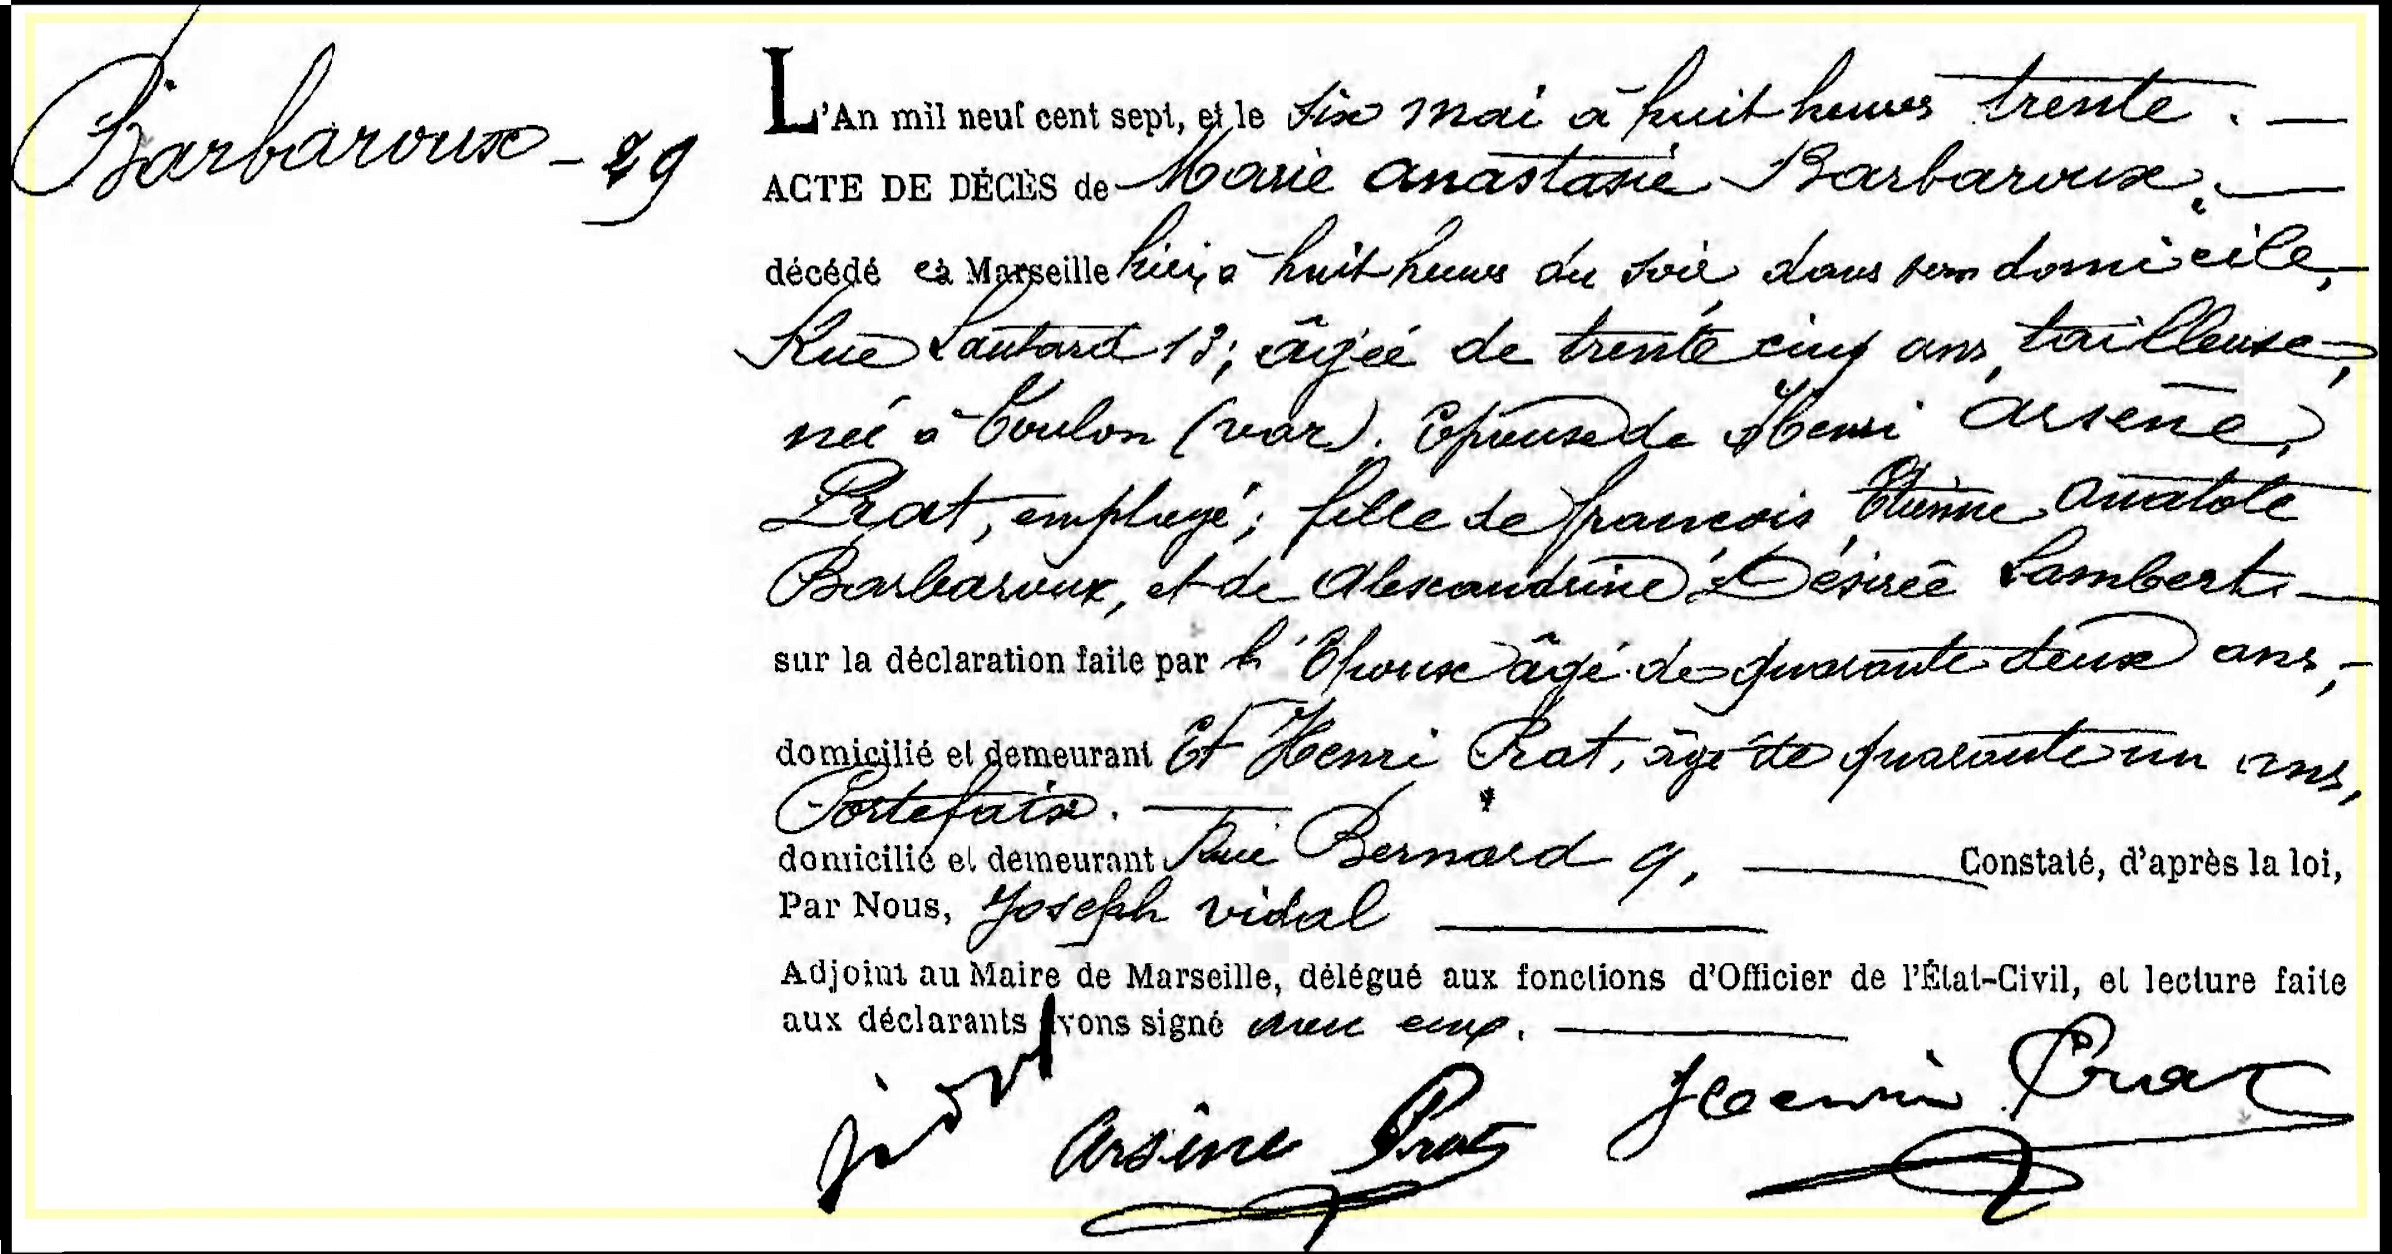 Barbaroux - 29
L'An mil neuf cent sept, et le six mai à huit heures trente. —
ACTE DE DÉCÈS de Marie Anastasie Barbaroux. —
décédé e à Marseille hier, à huit heures du soir, dans son domicile, —
Rue Lautard 13; âgée de trente cinq ans, tailleuse,
née à Toulon (var). Epouse de Henri Arsène,
Prat, employé; fille de françois Etienne Anatole
Barbaroux, et de Alexandrine Désirée Lambert. —
sur la déclaration faite par l'Epoux âgé de quarante deux ans, —
domicilié et demeurant Et Henri Prat, âgé de quarante un ans,
Portefaix. —
domicilié et demeurant Rue Bernard 9, — Constaté, d'après la loi,
Par Nous, Joseph Vidal —
Adjoint au Maire de Marseille, délégué aux fonctions d'Officier de l'État-Civil, et lecture faite
aux déclarants avons signé avec eux. —
Arsène Prat Prat